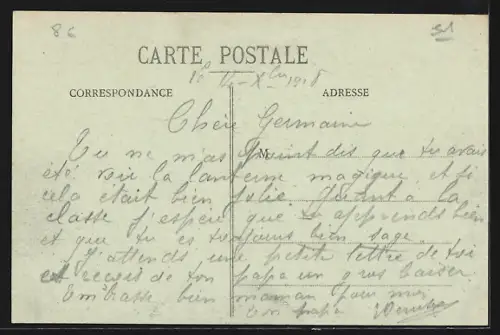 86
CARTE POSTALE
1918
CORRESPONDANCE
ADRESSE
Cher Germain
M
Tu ne m'as point dis que tu avais
été voir la lanterne magique et si
cela était bien jolie. Quant a la
classe j'espère que tu apprends bien
et que tu es toujours bien sage.
J'attends une petite lettre de toi
et reçois de ton papa un gros baiser
Embrasse bien maman pour moi
ton papa